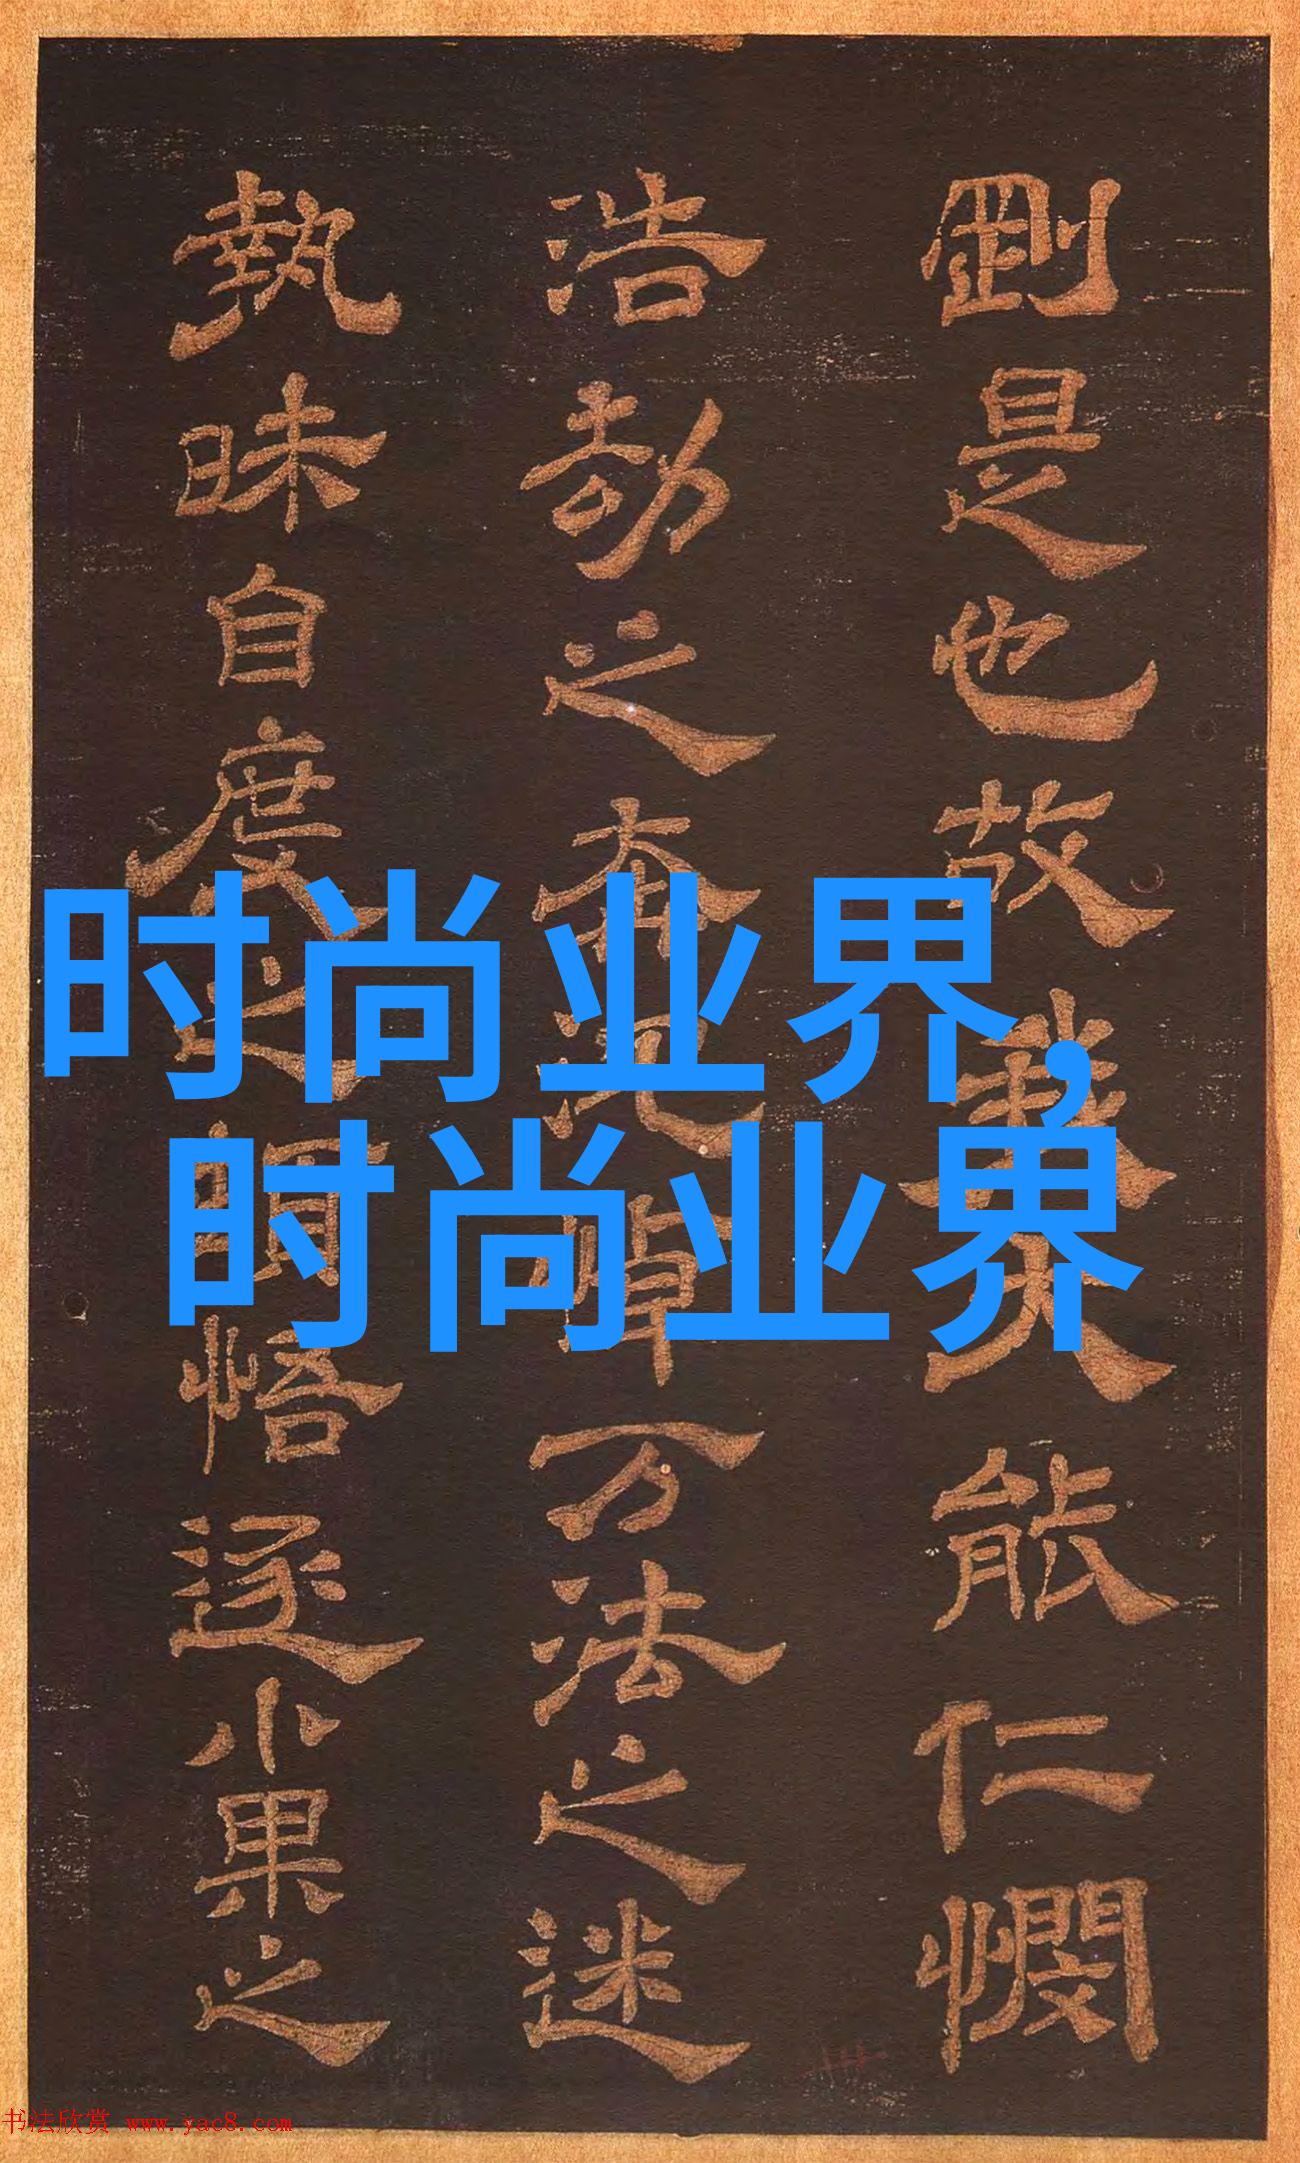 剛是也故我大能仁憫
浩劫之奔悼万法之迷
執昧自度之頓悟逐小果之
时尚业界,
时尚业界
书法欣赏 www.yac8.com